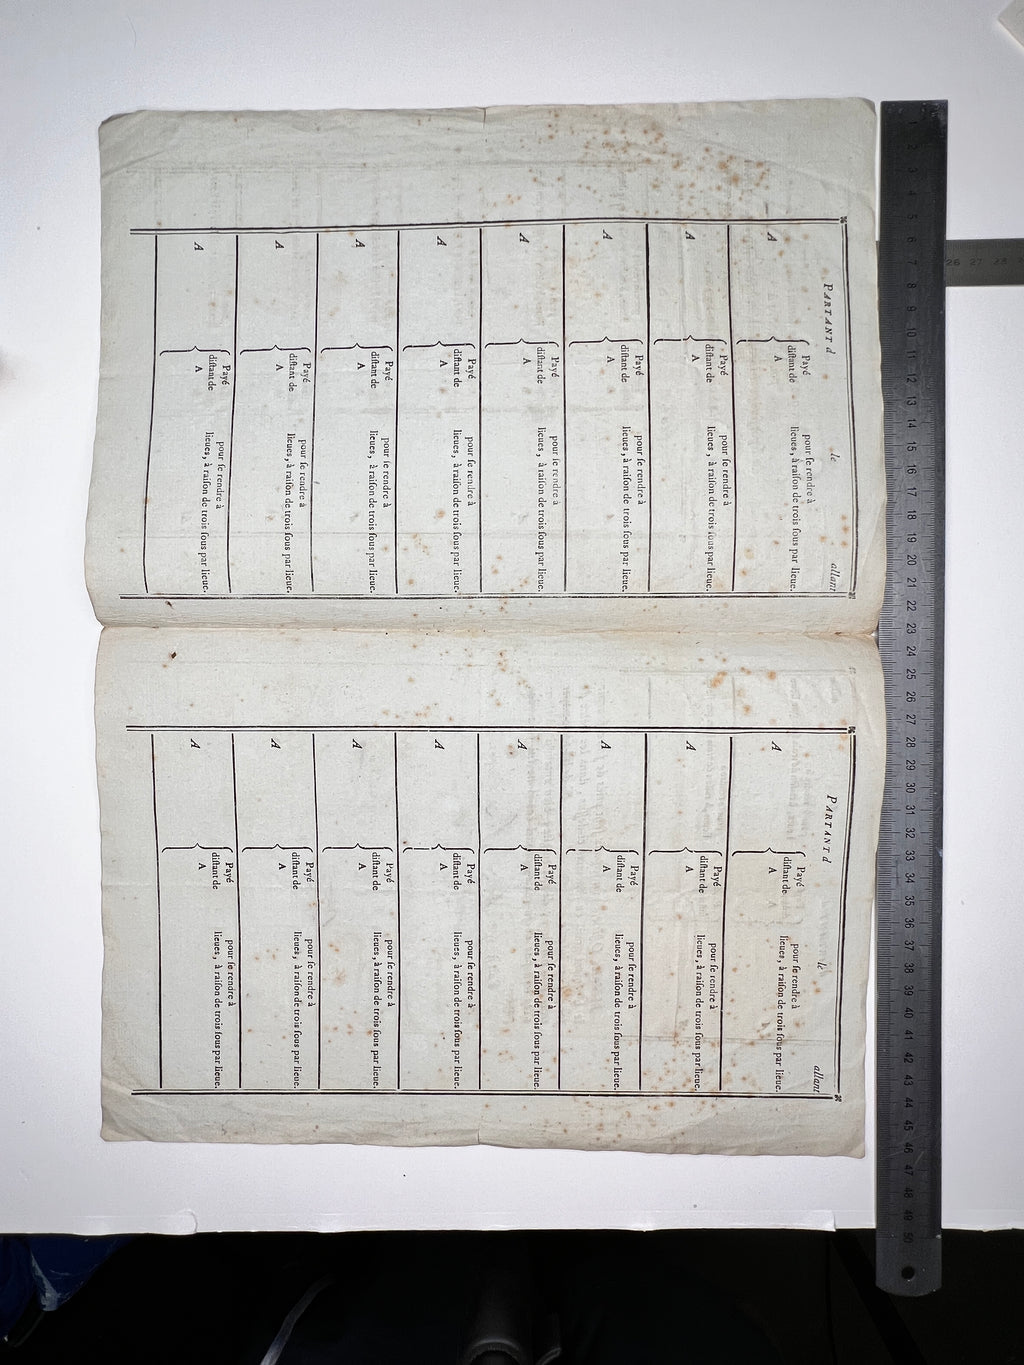 PARTANT d le allant
Payé pour ſe rendre à
A diſtant de lieues, à raiſon de trois ſous par lieue.
A
Payé pour ſe rendre à
A diſtant de lieues, à raiſon de trois ſous par lieue.
A
Payé pour ſe rendre à
A diſtant de lieues, à raiſon de trois ſous par lieue.
A
Payé pour ſe rendre à
A diſtant de lieues, à raiſon de trois ſous par lieue.
A
Payé pour ſe rendre à
A diſtant de lieues, à raiſon de trois ſous par lieue.
A
Payé pour ſe rendre à
A diſtant de lieues, à raiſon de trois ſous par lieue.
A
Payé pour ſe rendre à
A diſtant de lieues, à raiſon de trois ſous par lieue.
A
Payé pour ſe rendre à
A diſtant de lieues, à raiſon de trois ſous par lieue.
A
PARTANT d le allant
Payé pour ſe rendre à
A diſtant de lieues, à raiſon de trois ſous par lieue.
A
Payé pour ſe rendre à
A diſtant de lieues, à raiſon de trois ſous par lieue.
A
Payé pour ſe rendre à
A diſtant de lieues, à raiſon de trois ſous par lieue.
A
Payé pour ſe rendre à
A diſtant de lieues, à raiſon de trois ſous par lieue.
A
Payé pour ſe rendre à
A diſtant de lieues, à raiſon de trois ſous par lieue.
A
Payé pour ſe rendre à
A diſtant de lieues, à raiſon de trois ſous par lieue.
A
Payé pour ſe rendre à
A diſtant de lieues, à raiſon de trois ſous par lieue.
A
Payé pour ſe rendre à
A diſtant de lieues, à raiſon de trois ſous par lieue.
A
1 2 3 4 5 6 7 8 9 10 11 12 13 14 15 16 17 18 19 20 21 22 23 24 25 26 27 28 29 30 31 32 33 34 35 36 37 38 39 40 41 42 43 44 45 46 47 48 49 50
26 27 28